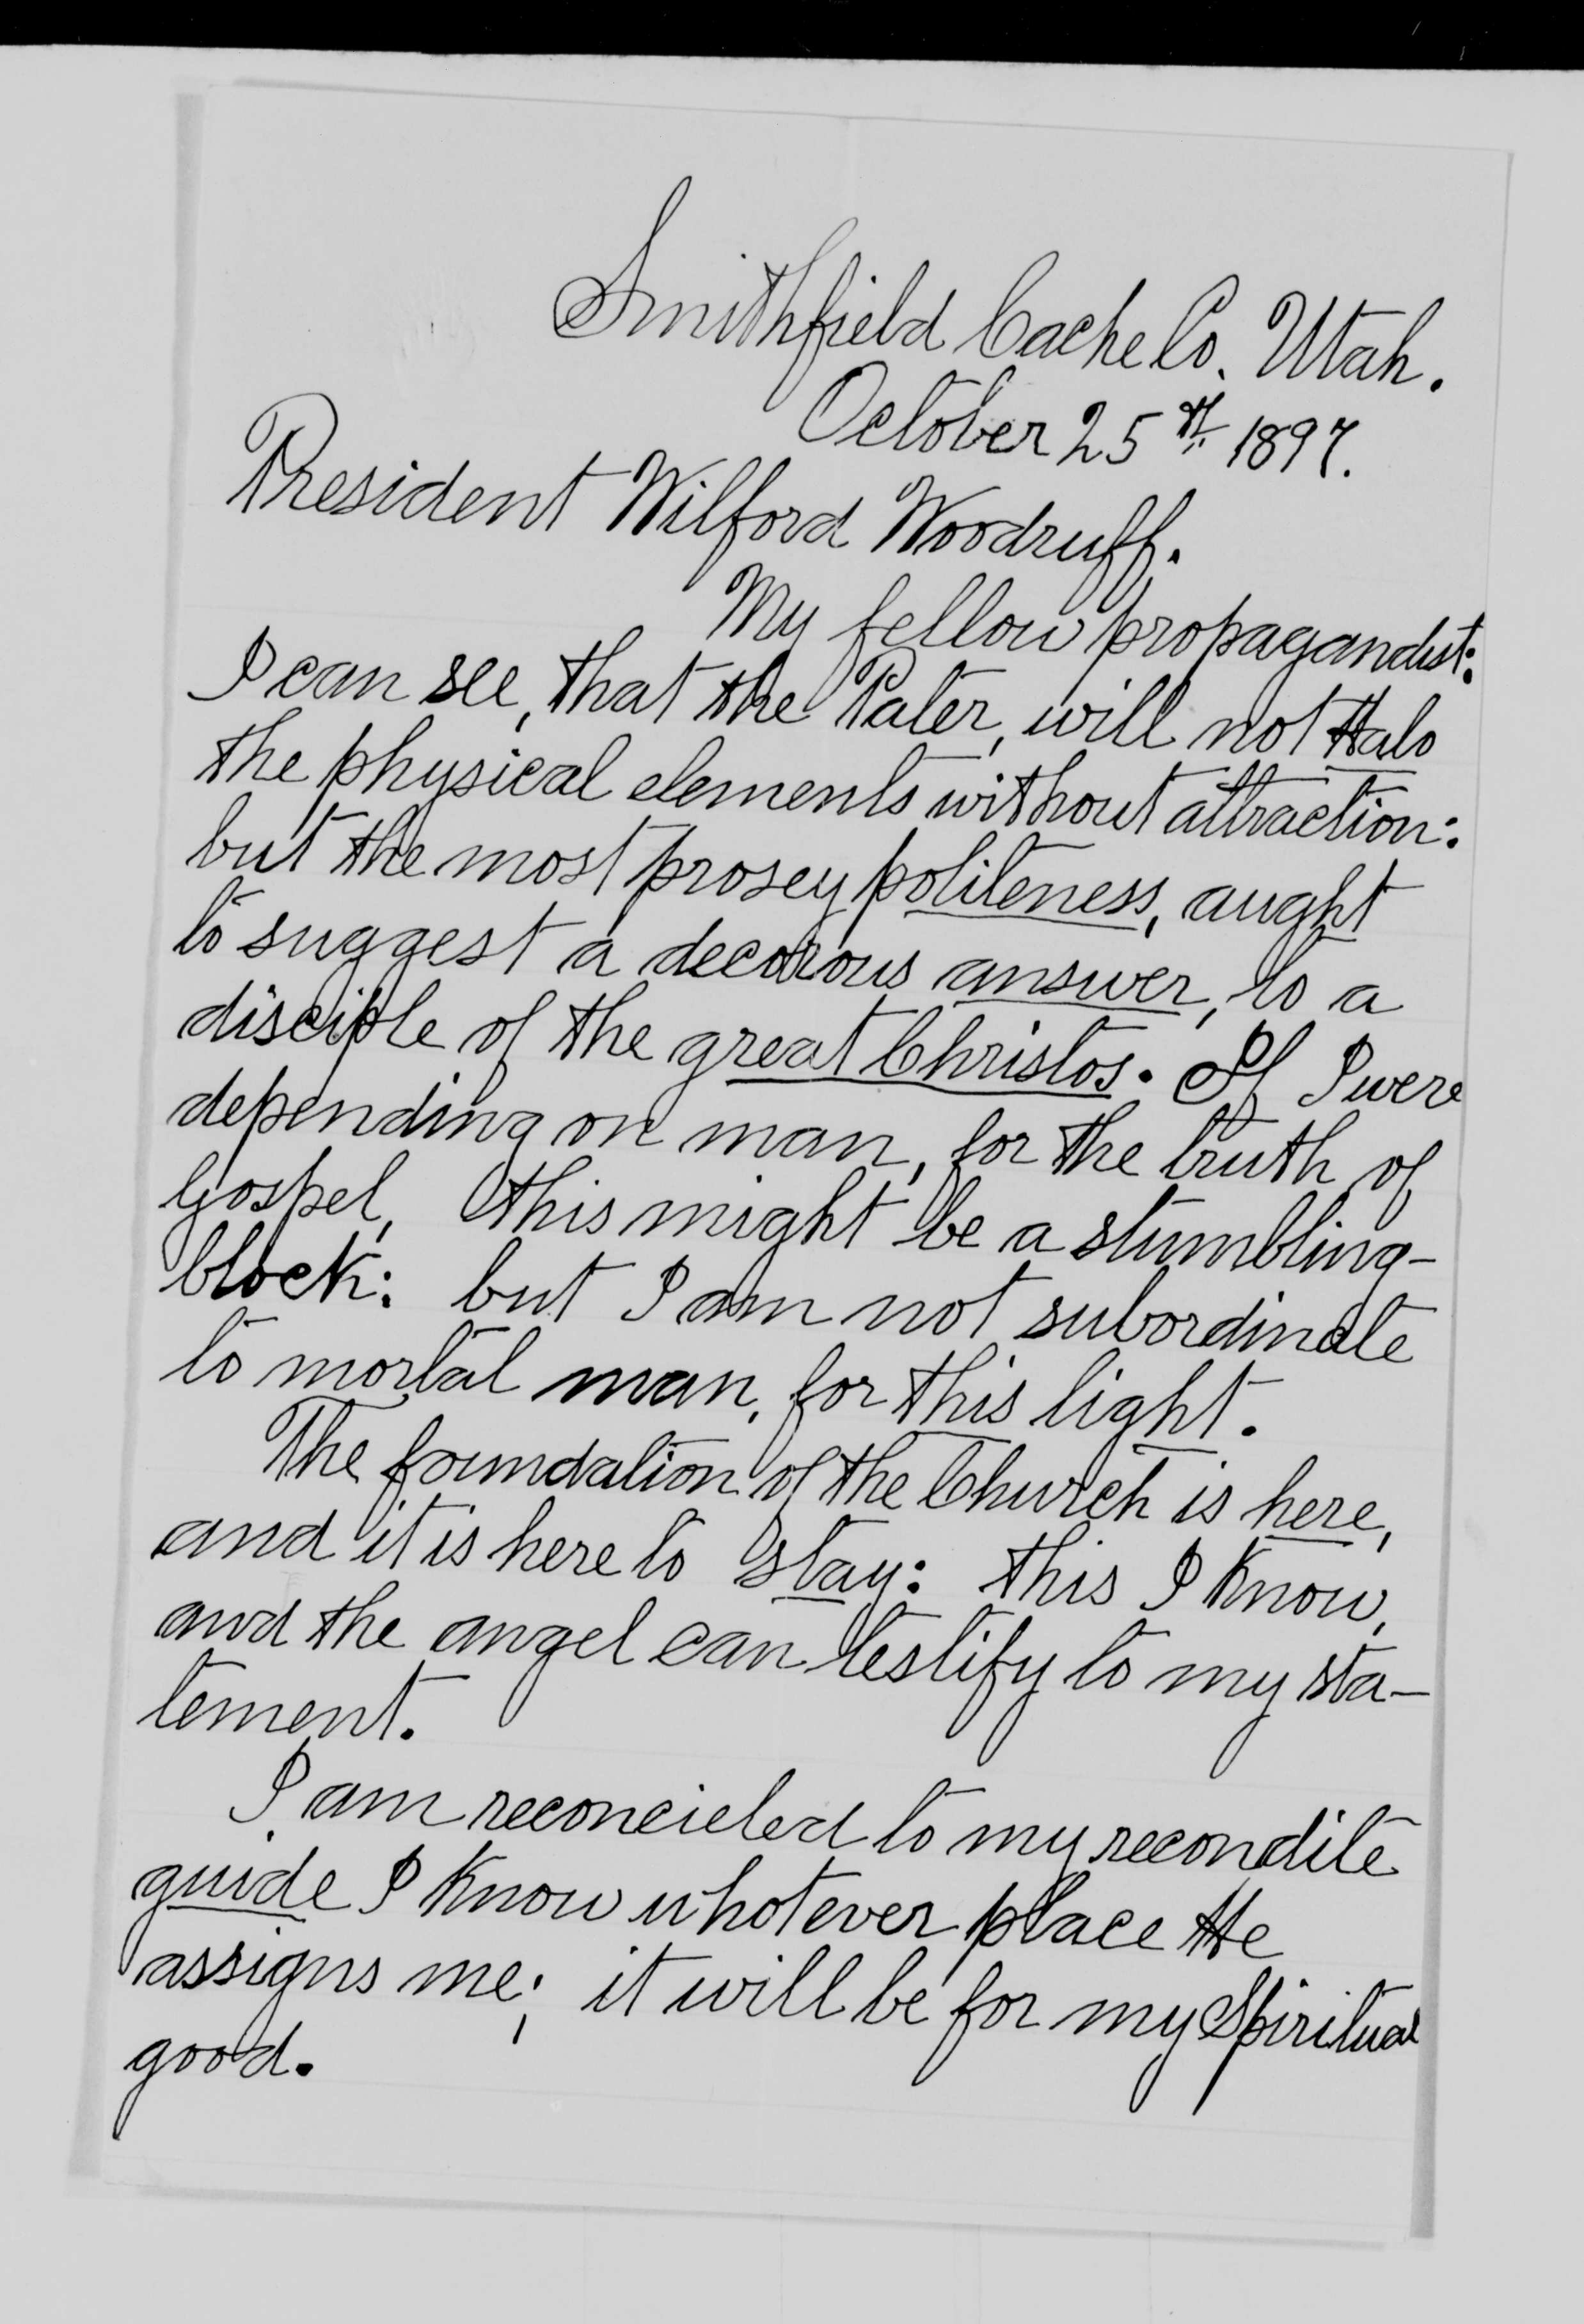 Smithfield Cache Co. Utah.
October 25th. 1897.
President Wilford Woodruff.
My fellow propagandist:
I can see, that the Pater, will not Halo
the physical elements without attraction:
but the most prosey politeness, aught
to suggest a decorous answer, to a
disciple of the great Christos. If I were
depending on man, for the truth of
Gospel, this might be a stumbling-
block: but I am not subordinate
to mortal man, for this light.
The foundation of the Church is here,
and it is here to stay: this I know,
and the angel can testify to my sta-
tement.
I am reconcieled to my recondite
guide I know whotever place He
assigns me; it will be for my Spiritual
good.